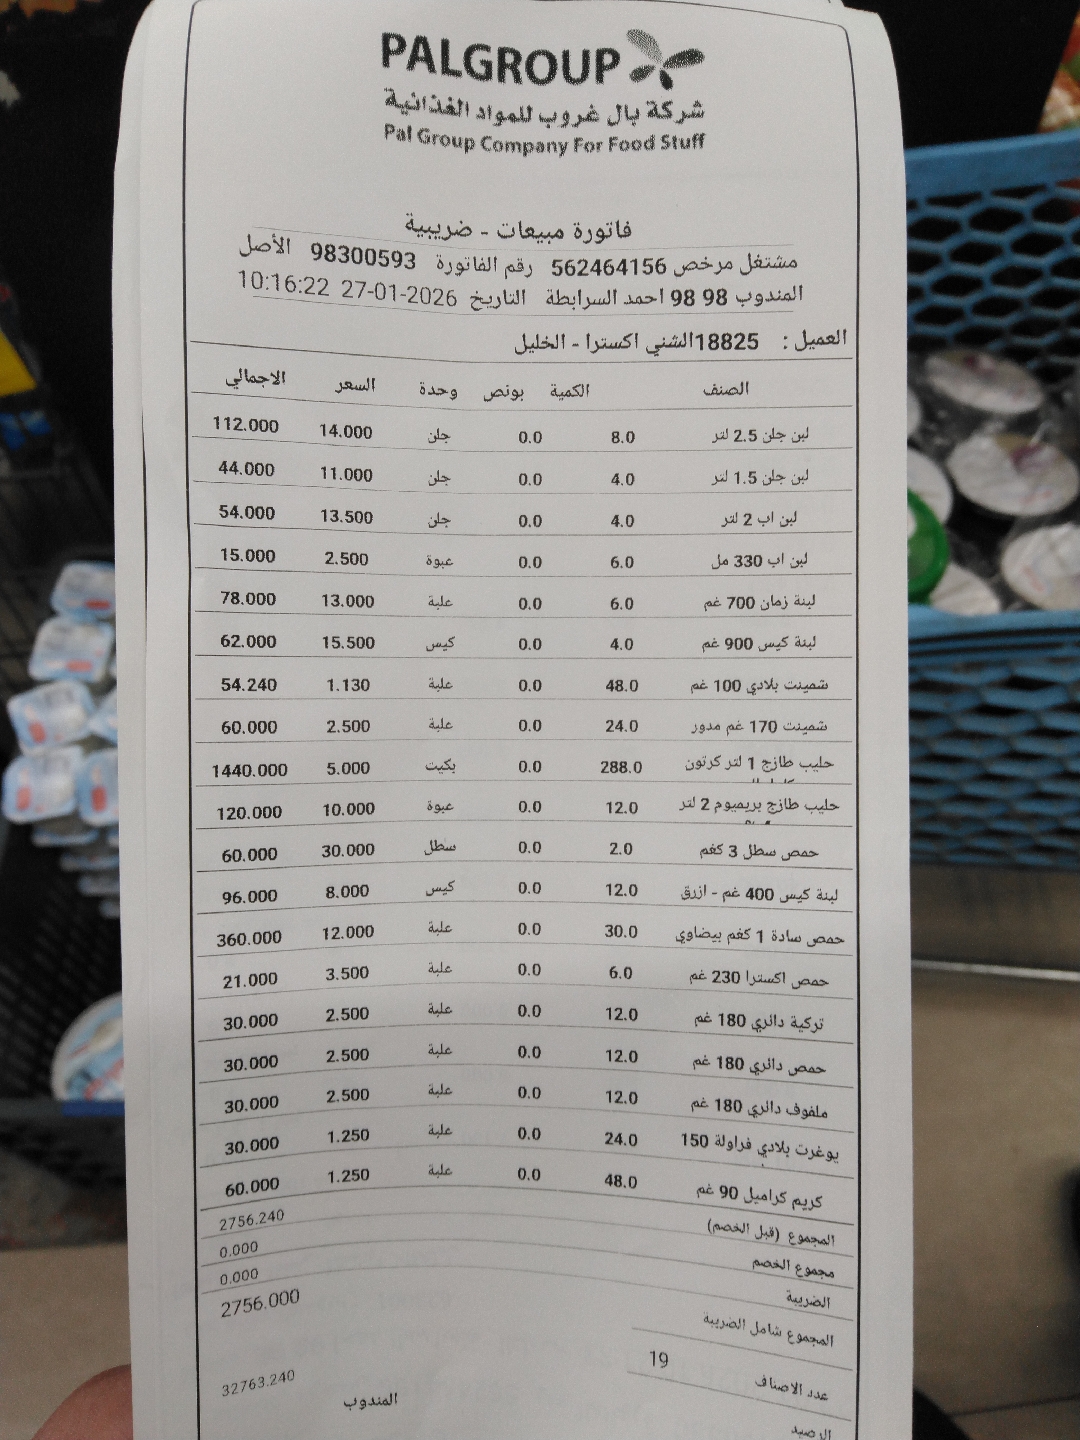 PALGROUP
شركة بال غروب للمواد الغذائية
Pal Group Company For Food Stuff
فاتورة مبيعات - ضريبية
مشتغل مرخص 562464156 رقم الفاتورة 98300593 الأصل
المندوب 98 98 احمد السرابطة التاريخ 27-01-2026 10:16:22
العميل : 18825الشني اكسترا - الخليل
الصنف الكمية بونص وحدة السعر الاجمالي
لبن جلن 2.5 لتر 8.0 0.0 جلن 14.000 112.000
لبن جلن 1.5 لتر 4.0 0.0 جلن 11.000 44.000
لبن اب 2 لتر 4.0 0.0 جلن 13.500 54.000
لبن اب 330 مل 6.0 0.0 عبوة 2.500 15.000
لبنة زمان 700 غم 6.0 0.0 علبة 13.000 78.000
لبنة كيس 900 غم 4.0 0.0 كيس 15.500 62.000
شمينت بلادي 100 غم 48.0 0.0 علبة 1.130 54.240
شمينت 170 غم مدور 24.0 0.0 علبة 2.500 60.000
حليب طازج 1 لتر كرتون 288.0 0.0 بكيت 5.000 1440.000
حليب طازج بريميوم 2 لتر 12.0 0.0 عبوة 10.000 120.000
حمص سطل 3 كغم 2.0 0.0 سطل 30.000 60.000
لبنة كيس 400 غم - ازرق 12.0 0.0 كيس 8.000 96.000
حمص سادة 1 كغم بيضاوي 30.0 0.0 علبة 12.000 360.000
حمص اكسترا 230 غم 6.0 0.0 علبة 3.500 21.000
تركية دائري 180 غم 12.0 0.0 علبة 2.500 30.000
حمص دائري 180 غم 12.0 0.0 علبة 2.500 30.000
ملفوف دائري 180 غم 12.0 0.0 علبة 2.500 30.000
يوغرت بلادي فراولة 150 24.0 0.0 علبة 1.250 30.000
كريم كراميل 90 غم 48.0 0.0 علبة 1.250 60.000
المجموع (قبل الخصم) 2756.240
مجموع الخصم 0.000
الضريبة 0.000
المجموع شامل الضريبة 2756.000
عدد الاصناف 19
الرصيد 32763.240
المندوب